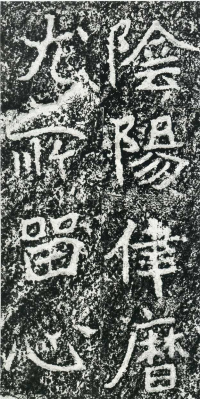 陰陽律曆
尤所留心